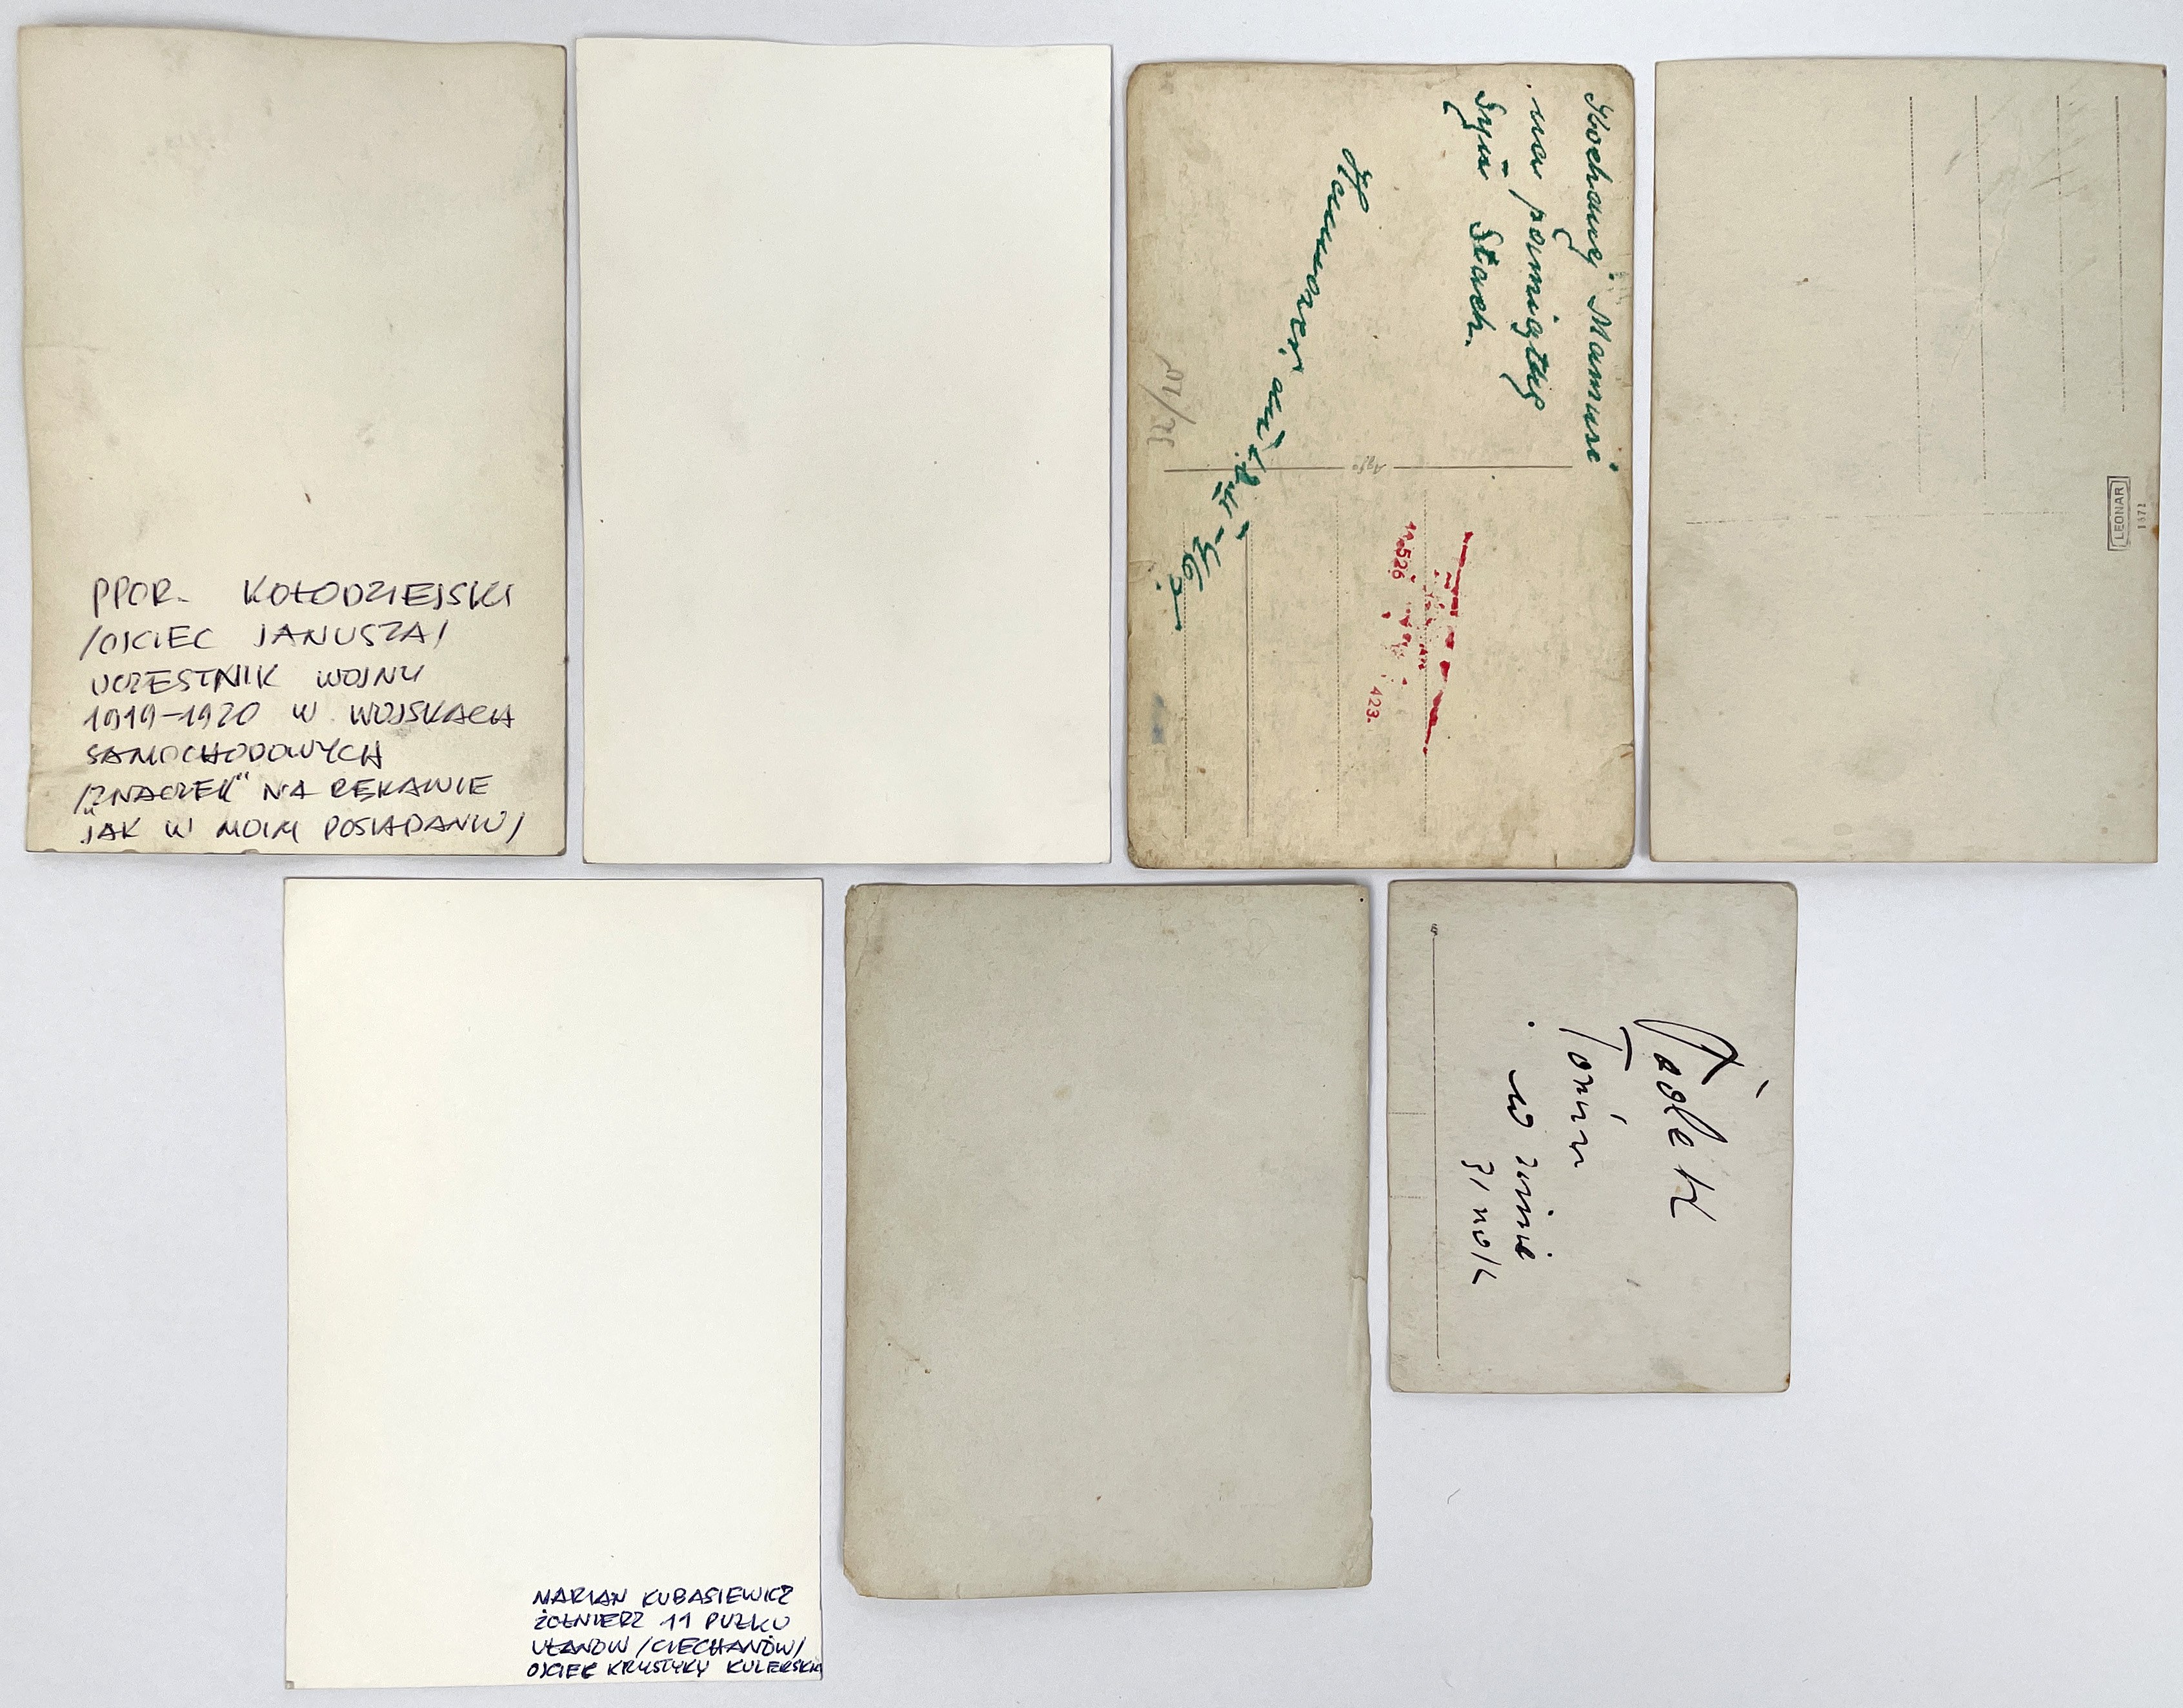 PPOR. KOŁODZIEJSKI
/OJCIEC JANUSZA/
UCZESTNIK WOJNY
1919-1920 W WOJSKACH
SAMOCHODOWYCH
/"ZNACZEK" NA RĘKAWIE
JAK W MOIM POSIADANIU/
Kochanej Mamusi
na pamiątkę
Syn Stach.
Hannover, dnia
Agfa
11.526
423.
LEONAR
1371
MARIAN KUBASIEWICZ
ŻOŁNIERZ 11 PUŁKU
UŁANÓW /CIECHANÓW/
OJCIEC KRYSTYNY KULERSKIEJ
w zimie
31 rok